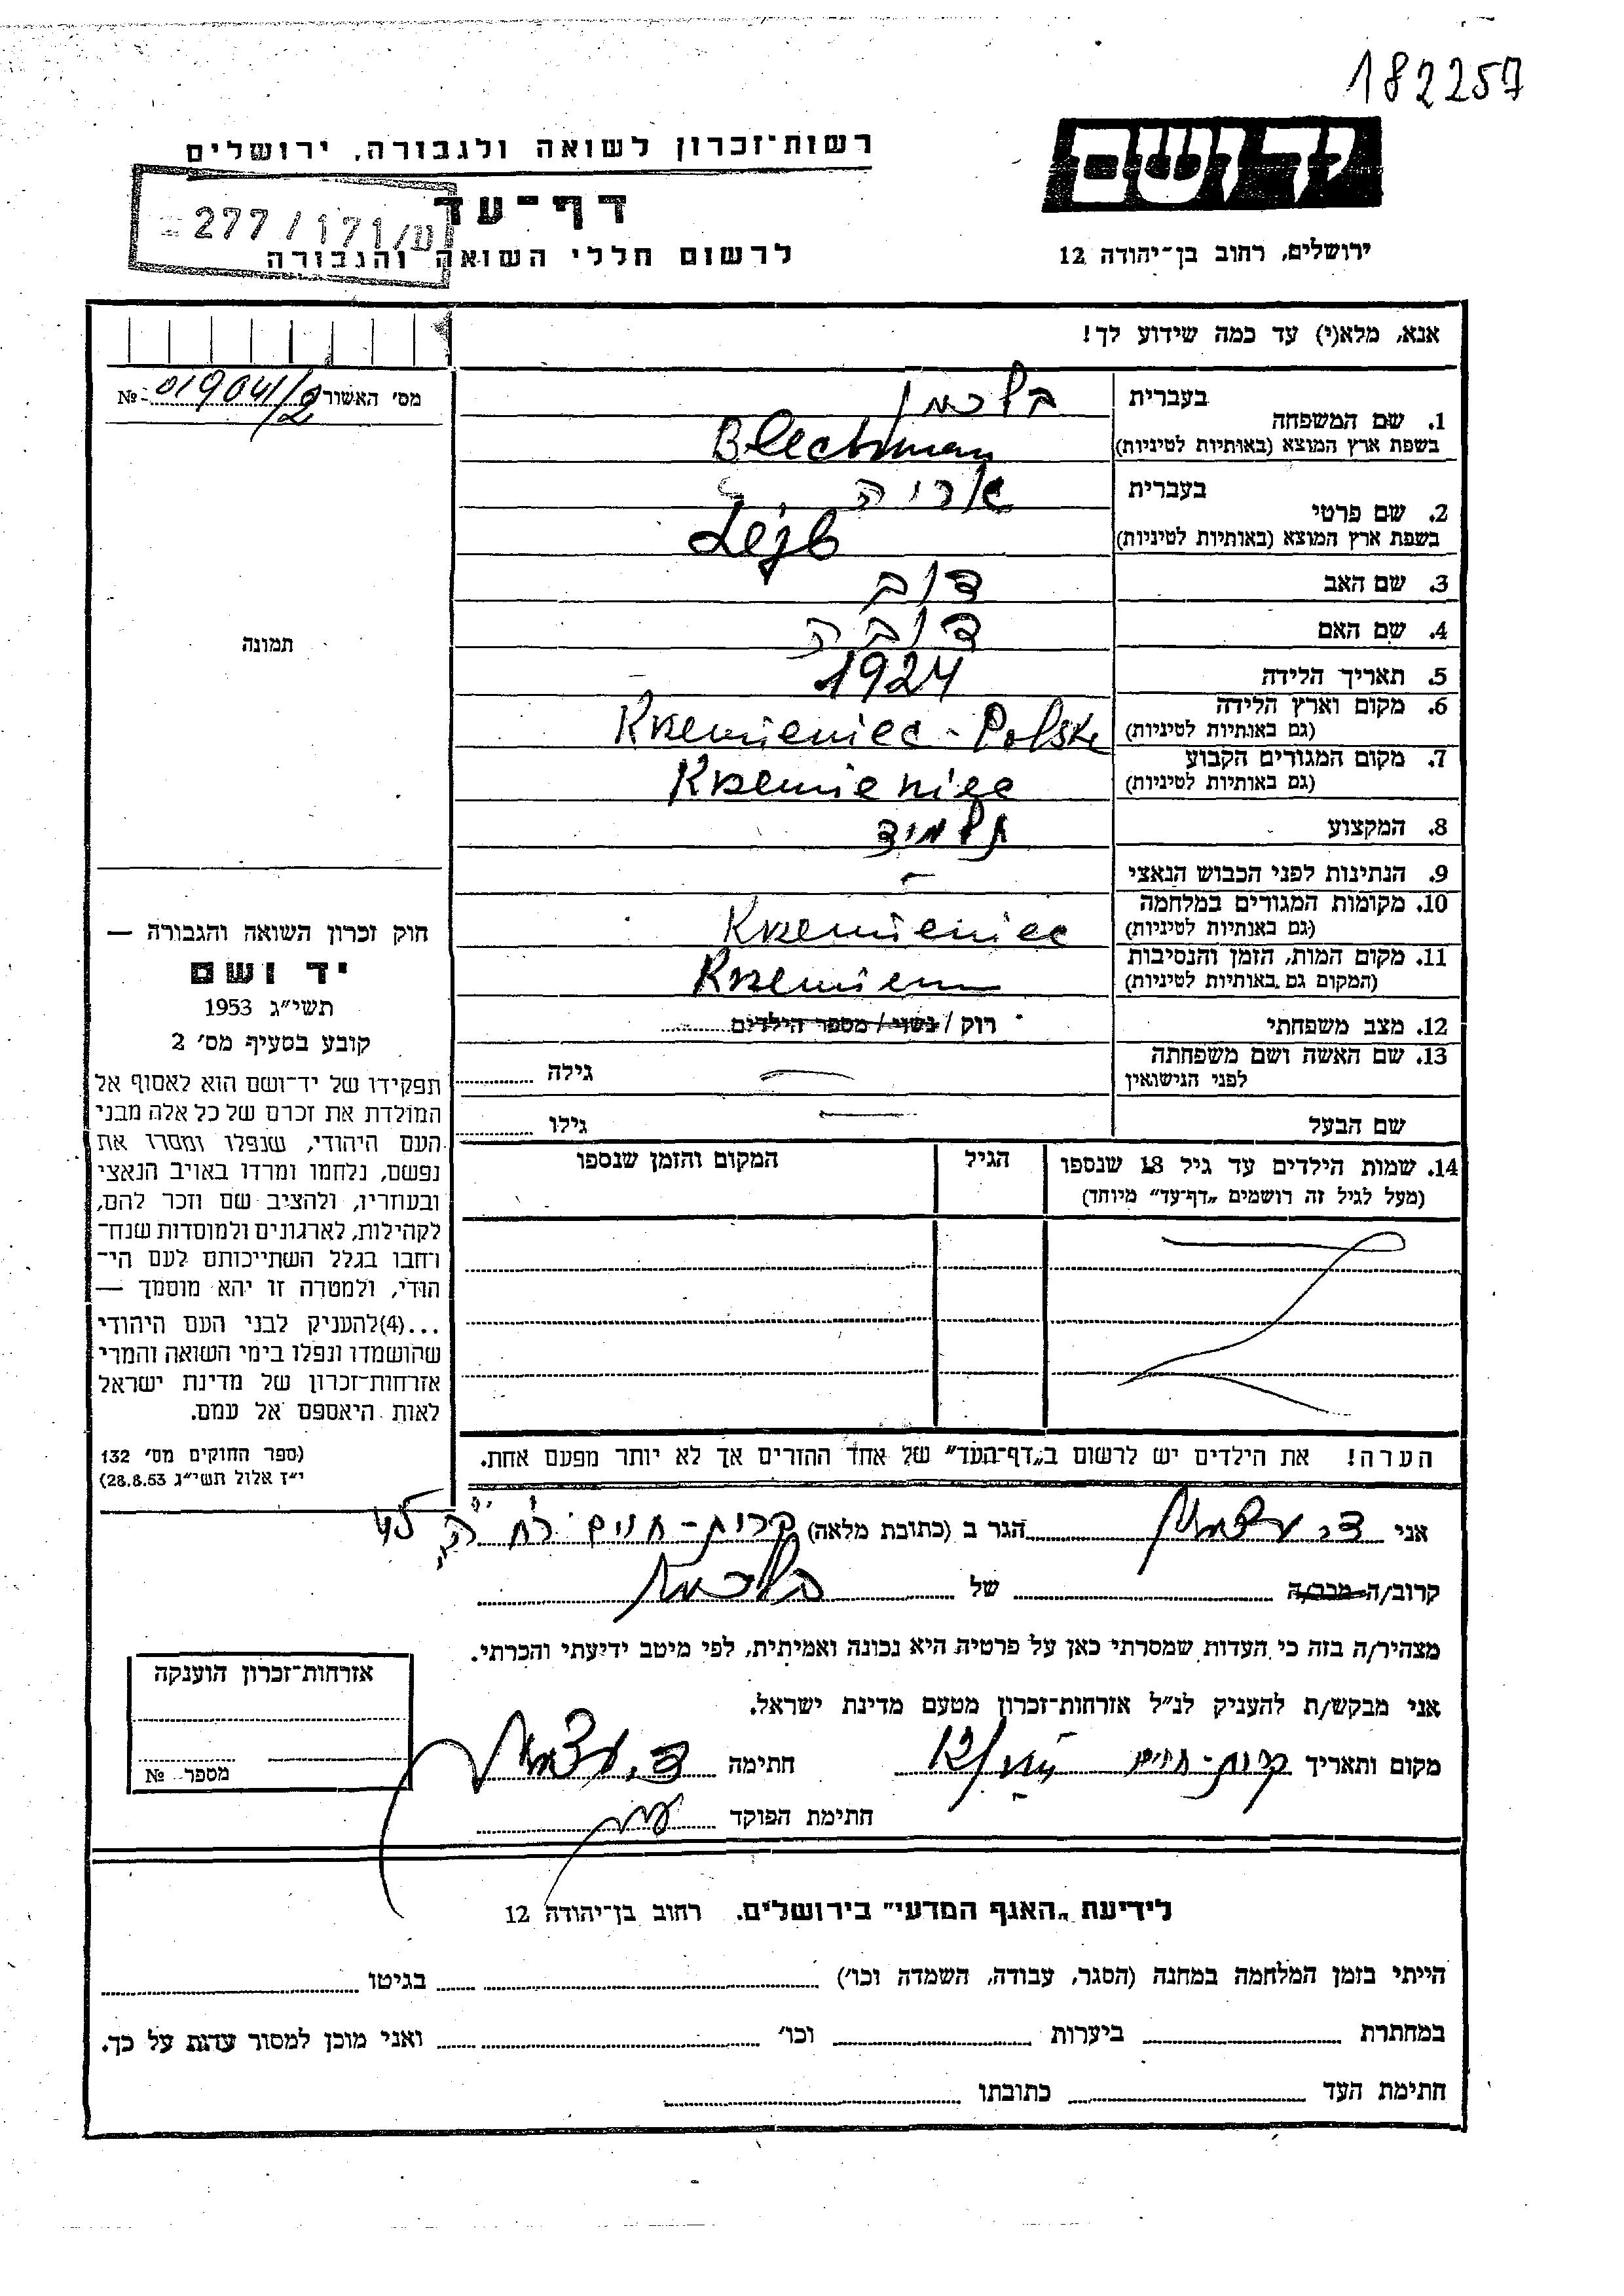 182257
יד ושם
רשות־זכרון לשואה ולגבורה, ירושלים
דף־עד
277/171/ש
לרשום חללי השואה והגבורה
ירושלים, רחוב בן־יהודה 12
אנא, מלא(י) עד כמה שידוע לך!
מס' האשור 019041/2 №
1. שם המשפחה בעברית בלכמן
בשפת ארץ המוצא (באותיות לטיניות) Blechman
2. שם פרטי בעברית אריה
בשפת ארץ המוצא (באותיות לטיניות) Lejb
3. שם האב דוב
4. שם האם דובה
5. תאריך הלידה 1924
6. מקום וארץ הלידה Krzemieniec - Polska
(גם באותיות לטיניות)
7. מקום המגורים הקבוע Krzemieniec
(גם באותיות לטיניות)
8. המקצוע תלמיד
9. הנתינות לפני הכבוש הנאצי -
10. מקומות המגורים במלחמה Krzemieniec
(גם באותיות לטיניות)
11. מקום המות, הזמן והנסיבות Krzemien
(המקום גם באותיות לטיניות)
12. מצב משפחתי רוק / נשוי / מספר הילדים
13. שם האשה ושם משפחתה גילה
לפני הנישואין
שם הבעל גילו
14. שמות הילדים עד גיל 18 שנספו הגיל המקום והזמן שנספו
(מעל לגיל זה רושמים „דף־עד" מיוחד)
הערה! את הילדים יש לרשום ב„דף־העד" של אחד ההורים אך לא יותר מפעם אחת.
תמונה
חוק זכרון השואה והגבורה —
יד ושם
תשי"ג 1953
קובע בסעיף מס' 2
תפקידו של יד־ושם הוא לאסוף אל
המולדת את זכרם של כל אלה מבני
העם היהודי, שנפלו ומסרו את
נפשם, נלחמו ומרדו באויב הנאצי
ובעוזריו, ולהציב שם וזכר להם,
לקהילות, לארגונים ולמוסדות שנח־
רחבו בגלל השתייכותם לעם הי־
הודי, ולמטרה זו יהא מוסמך —
...(4)להעניק לבני העם היהודי
שהושמדו ונפלו בימי השואה והמרי
אזרחות־זכרון של מדינת ישראל
לאות היאספם אל עמם.
(ספר החוקים מס' 132
י"ז אלול תשי"ג 28.8.53)
אני ד. הגר ב (כתובת מלאה) קרית-חיים רח'
קרוב/ה מכר/ה של בלכמן
מצהיר/ה בזה כי העדות שמסרתי כאן על פרטיה היא נכונה ואמיתית, לפי מיטב ידיעתי והכרתי.
אני מבקש/ת להעניק לנ"ל אזרחות־זכרון מטעם מדינת ישראל.
מקום ותאריך קרית-חיים חתימה
חתימת הפוקד
אזרחות־זכרון הוענקה
מספר №
לידיעת „האגף המדעי" בירושלים. רחוב בן־יהודה 12
הייתי בזמן המלחמה במחנה (הסגר, עבודה, השמדה וכו') בגיטו
במחתרת ביערות וכו' ואני מוכן למסור עדות על כך.
חתימת העד כתובתו